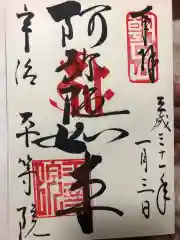 奉拝
平成三十一年
一月三日
阿弥陀如来
宇治 平等院